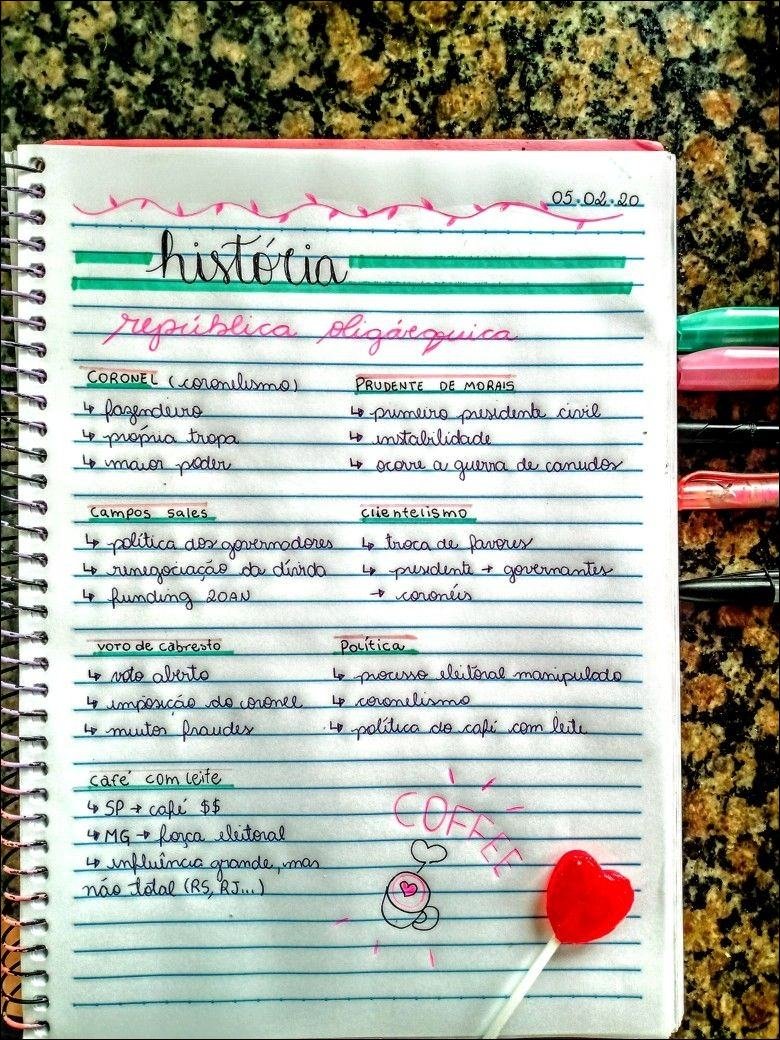 05.02.20
história
república oligárquica
CORONEL (coronelismo)
↳ fazendeiro
↳ própria tropa
↳ maior poder
PRUDENTE DE MORAIS
↳ primeiro presidente civil
↳ instabilidade
↳ ocorre a guerra de canudos
campos sales
↳ política dos governadores
↳ renegociação da dívida
↳ funding LOAN
clientelismo
↳ troca de favores
↳ presidente → governantes
→ coronéis
voto de cabresto
↳ voto aberto
↳ imposição do coronel
↳ muitos fraudes
Política
↳ processo eleitoral manipulado
↳ coronelismo
↳ política do café com leite
café com leite
↳ SP → café $$
↳ MG → força eleitoral
↳ influência grande, mas
não total (RS, RJ...)
COFFEE